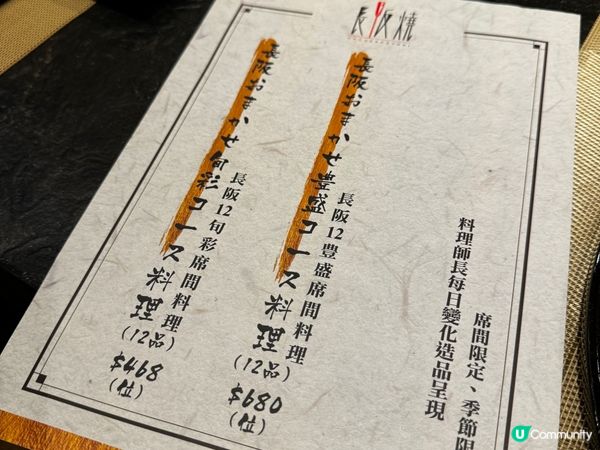 長阪燒
席間限定、季節限
料理師長每日變化造品呈現
長阪おまかせ豊盛コース料理
(12品)
$680
(位)
長阪12豐盛席間料理
長阪おまかせ旬彩コース料理
(12品)
$468
(位)
長阪12旬彩席間料理
U Community